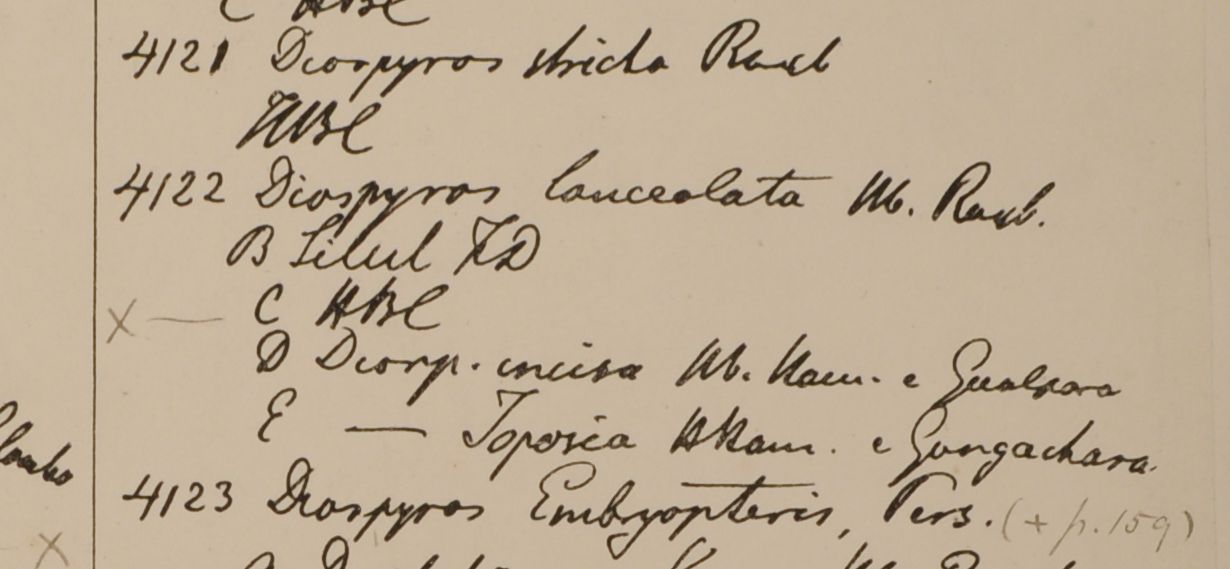 C HBC
4121 Diospyros stricta Roxb
HBC
4122 Diospyros lanceolata Hb. Roxb.
B Silet FD
X — C HBC
D Diosp. incisa Hb. Ham. e Gualpara
E — Toposia HHam. e Gongachara
4123 Diospyros Embryopteris, Pers. (+ p. 159)
X